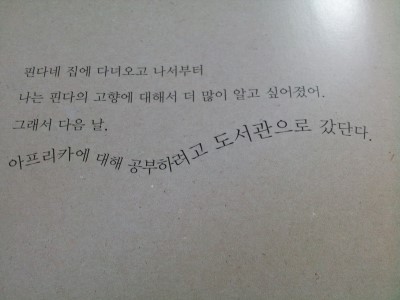 핀다네 집에 다녀오고 나서부터
나는 핀다의 고향에 대해서 더 많이 알고 싶어졌어.
그래서 다음 날.
아프리카에 대해 공부하려고 도서관으로 갔단다.